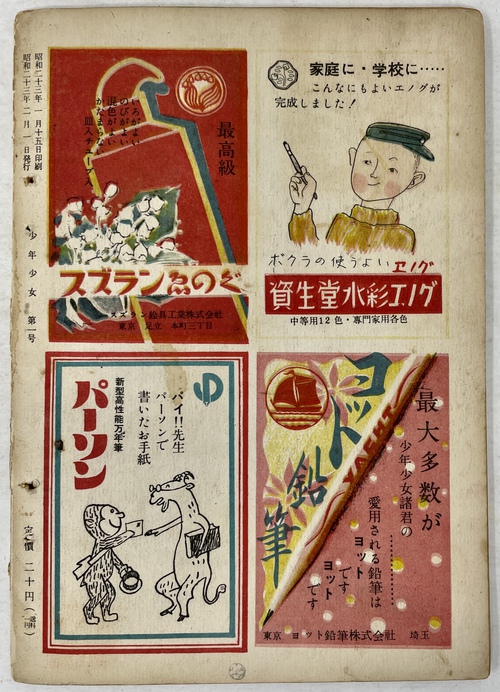 家庭に・学校に……
こんなにもよいエノグが
完成しました！
ボクラの使うよいエノグ
資生堂水彩エノグ
中等用12色・専門家用各色
最高級
いろがよい
のびがよい
混色がよい
かたまらない
皿入チューブ入
スズランゑのぐ
スズラン絵具工業株式会社
東京 足立 本町三丁目
最大多数が
少年少女諸君の
愛用される鉛筆は
ヨット
です
ヨット
です
ヨット鉛筆
YACHT
東京 ヨット鉛筆株式会社 埼玉
パイ!!先生
パーソンで
書いたお手紙
新型高性能万年筆
パーソン
昭和二十三年一月十五日印刷
昭和二十三年二月一日発行
少年少女 第一号
定價 二十円